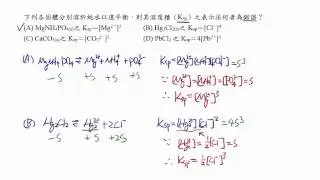 下列各固體分別溶於純水以達平衡,則其溶度積(Ksp)之表示法何者為錯誤?
✓(A) MgNH₄PO₄(s)之 Ksp=[Mg²⁺]³
(B) Hg₂Cl₂(s)之 Ksp=[Cl⁻]⁴
(C) CaCO₃(s)之 Ksp=[CO₃²⁻]²
(D) PbCl₂之 Ksp=4[Pb²⁺]³
(A) MgNH₄PO₄ ⇌ Mg²⁺+NH₄⁺+PO₄³⁻
-S +S +S +S
Ksp=[Mg²⁺][NH₄⁺][PO₄³⁻]=S³
∵ [Mg²⁺]=[NH₄⁺]=[PO₄³⁻]=S
∴ Ksp=[Mg²⁺]³
(B) Hg₂Cl₂ ⇌ Hg₂²⁺+2Cl⁻
-S +S +2S
Ksp=[Hg₂²⁺][Cl⁻]²=4S³
∵ [Hg₂²⁺]=½[Cl⁻]=S
∴ Ksp=½[Cl⁻]³